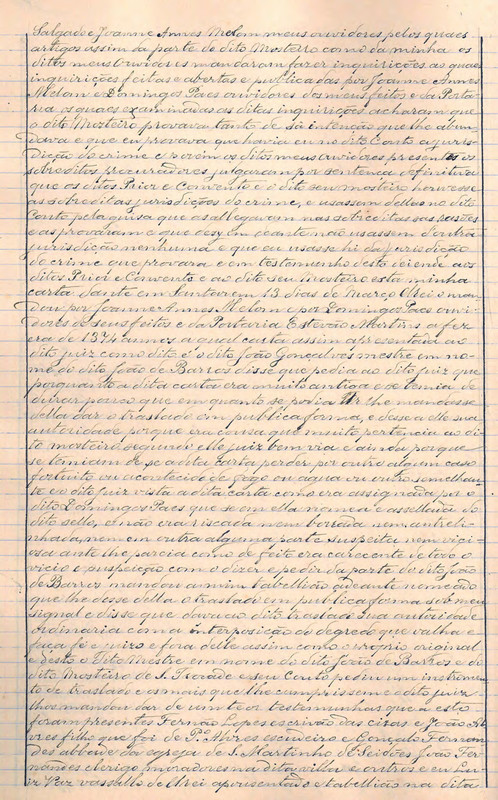 Salgado e Joanne Annes Melom meus ouvidores pelos quaes
artigos assim da parte do dito Mosteiro como da minha os
ditos meus ouvidores mandaram fazer inquirições as quaes
inquirições feitas e abertas e publicadas por Joanne Annes
Melom e Domingos Paes ouvidores dos meus feitos e da Porta
ria os quaes examinadas as ditas inquirições acharam que
o dito Mosteiro provava tanto de sá intenção que lhe abun
dava e que eu provava que havia eu no dito Couto a juris
dicção do crime e porém os ditos meus ouvidores presentes os
sobreditos procuradores, julgaram por sentença definitiva
que os ditos Prior e Convento e o dito seu mosteiro houvesse
as sobreditas jurisdicções do crime, e usassem dellas no dito
Couto pela guisa que as allegaram nas sobreditas sas rasões
e as provaram e que des em deante não usassem d'outra
jurisdicção nenhuma e que eu usasse hi da jurisdicção
do crime que provara e em testemunho desto dei ende aos
ditos Prior e Convento e ao dito seu Mosteiro esta minha
carta. Dante em Santarem 13 dias de Março ElRei o man
dou por Joanne Annes Melom e por Domingos Paes ouvi
dores de seus feitos e da Portaria Estevão Martins a fez
era de 1374 annos a qual carta assim apresentada ao
dito juiz como dito é o dito João Gonçalves mestre em no
me do dito João de Barros disse que pedia ao dito juiz que
porquanto a dita carta era muito antiga e se temia de
durar pouco que em quanto se podia ler lhe mandasse
della dar o traslado em publica forma, e desse a elle sua
autoridade porque era cousa que muito pertencia ao di
to mosteiro segundo elle juiz bem via e ainda porque
se temiam de se a dita carta perder por outro algum caso
fortuito ou acontecido de fogo ou agua ou outro semelhan
te e o dito juiz vista a dita carta como era assignada por o
dito Domingos Paes que se em ella nomea e assellada do
dito sello, e não era riscada nem borrada nem antreli
nhada, nem em outra alguma parte suspeita nem vici
osa ante lhe parcia como de feito era carecente de todo o
vicio e suspeição com o dizer e pedir da parte do dito João
de Barros mandou a mim tabellião ao deante nomeado
que lhe desse della o traslado em publica forma sob meu
signal e disse que dava ao dito traslado sua autoridade
Ordinaria com a interposição do degredo que valha e
faça fé e juizo e fora delle assim como o proprio original
e desto o Dito Mestre em nome do dito João de Barros e do
dito Mosteiro de S. Torcade e seu Couto pediu um instrumen
to de traslado e os mais que lhe cumprissem e o dito juiz
lhos mandou dar de um teor testemunhas que a esto
foram presentes Fernão Lopes escrivão das cizas e João Al
vres filho que foi de P.º Alvres escudeiro e Gonçalo Fernan
des abbade da egreja de S. Martinho de Seidões João Fer
nandes clerigo moradores na dita villa e outros e eu Lu
iz Vaz vassallo de ElRei aposentado e tabellião na dita